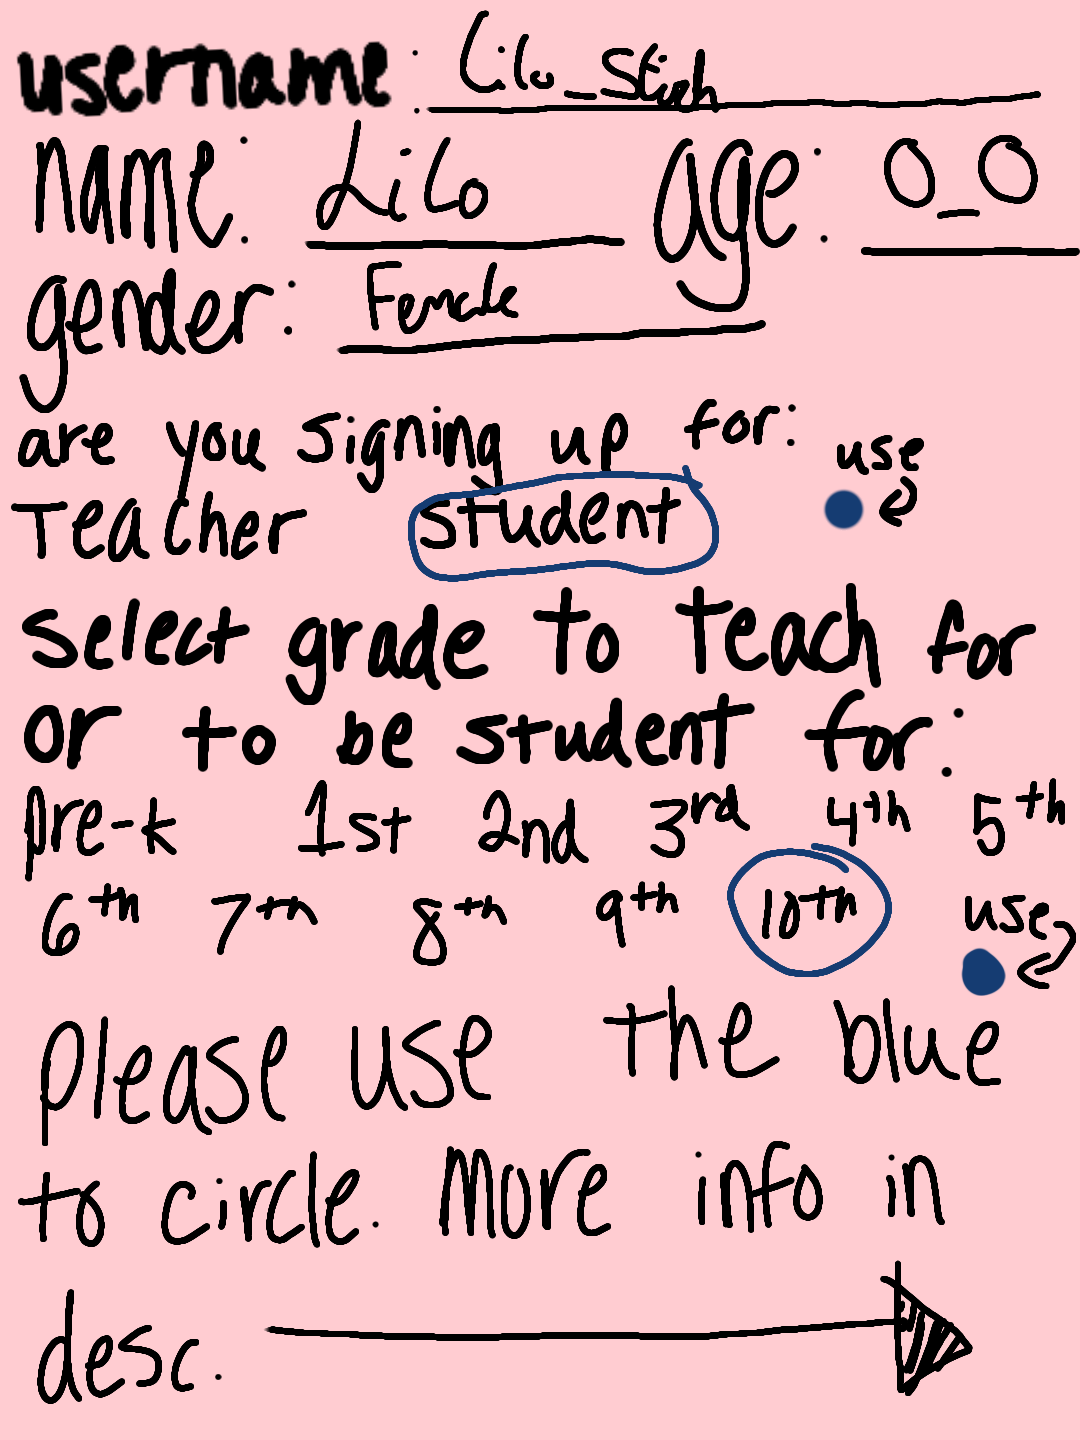 username: Lilo_Stich
name: Lilo age: 0_0
gender: Female
are you signing up for:
Teacher student use
select grade to teach for
or to be student for:
pre-k 1st 2nd 3rd 4th 5th
6th 7th 8th 9th 10th use
please use the blue
to circle. More info in
desc.